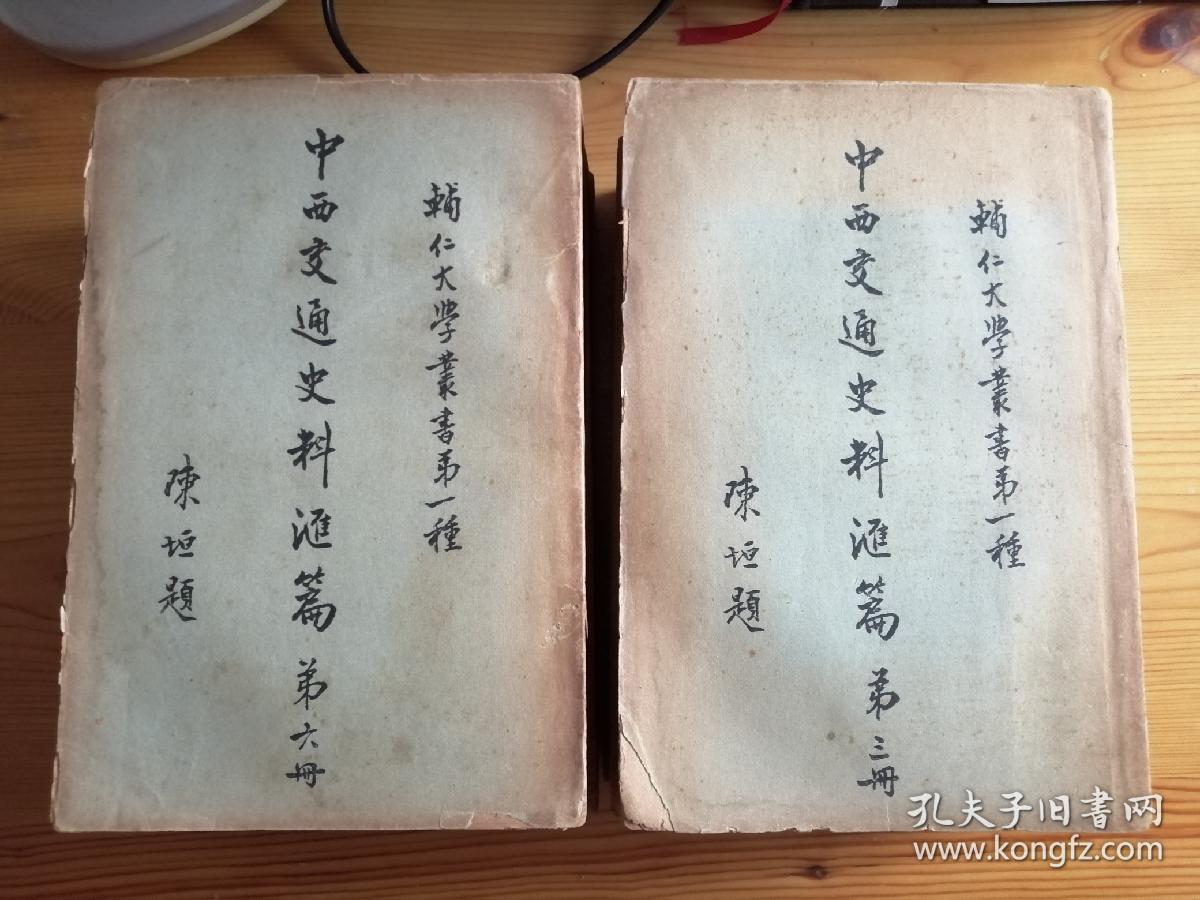 輔仁大學叢書第一種
中西交通史料滙篇 第六冊
陳垣題
輔仁大學叢書第一種
中西交通史料滙篇 第三冊
陳垣題
孔夫子旧书网
www.kongfz.com